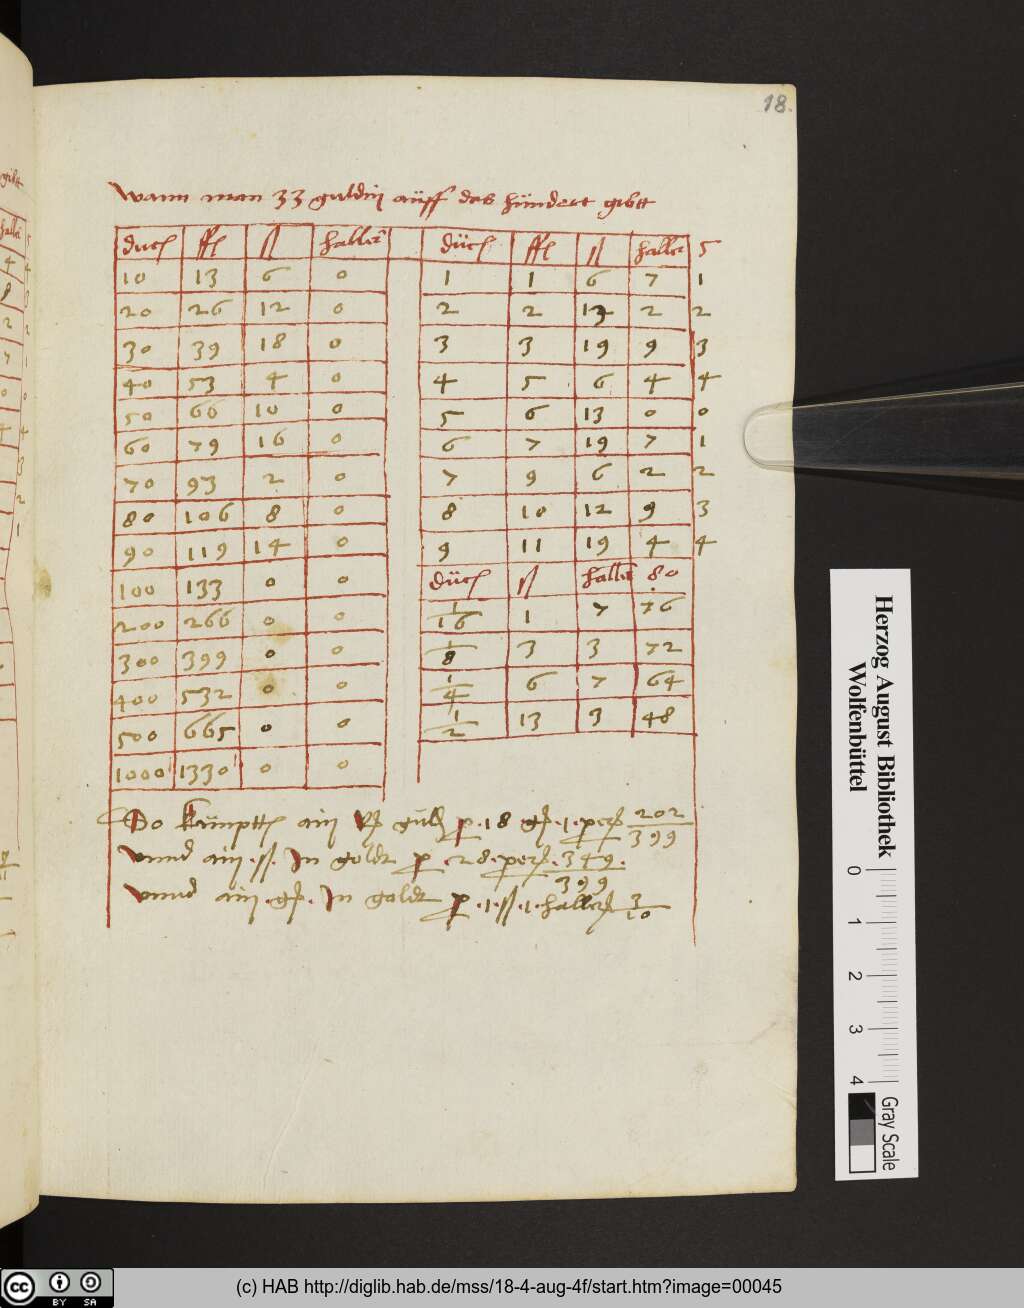 18.
wann man 33 guldin aüff das hündert gibtt
duc fl ß haller
10 13 6 0
20 26 12 0
30 39 18 0
40 53 4 0
50 66 10 0
60 79 16 0
70 93 2 0
80 106 8 0
90 119 14 0
100 133 0 0
200 266 0 0
300 399 0 0
400 532 0 0
500 665 0 0
1000 1330 0 0
düc fl ß haller 5
1 1 6 7 1
2 2 13 2 2
3 3 19 9 3
4 5 6 4 4
5 6 13 0 0
6 7 19 7 1
7 9 6 2 2
8 10 12 9 3
9 11 19 4 4
düc ß haller 80
1/16 1 7 76
1/8 3 3 72
1/4 6 7 64
1/2 13 3 48
So kümptt ain güld p 18 1 202/399
vnnd ain ß In goldt p 28 349/399
vnnd ain In goldt p 1 ß 1 haller 3/10
Herzog August Bibliothek
Wolfenbüttel
0 1 2 3 4
Gray Scale
cc BY SA
(c) HAB http://diglib.hab.de/mss/18-4-aug-4f/start.htm?image=00045